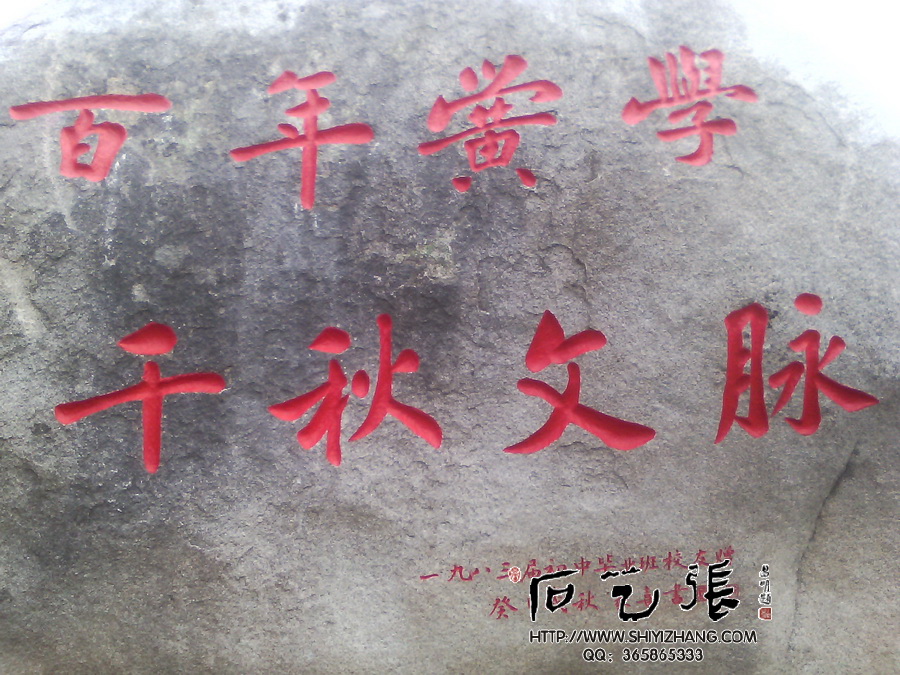 百年黌學
千秋文脉
一九八三届初中毕业班校友贈
癸 秋 書
石艺張
HTTP://WWW.SHIYIZHANG.COM
QQ: 365865333